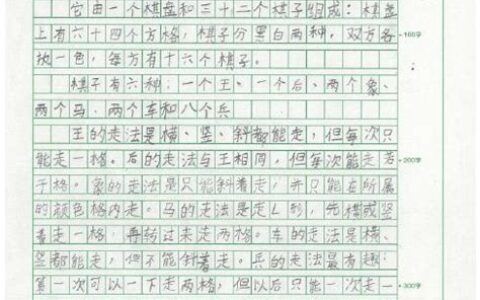 它由一个棋盘和三十二个棋子组成：棋盘
上有六十四个方格，棋子分黑白两种，双方各
执一色，每方有十六个棋子。
棋子有六种：一个王、一个后、两个象、
两个马、两个车和八个兵
王的走法是横、竖、斜都能走，但每次只
能走一格。后的走法与王相同，但每次能走若
干格。象的走法是只能斜着走，并只能在所属
的颜色格内走。马的走法是走L形，先横或竖
着走一格，再转过来走两格。车的走法是横、
竖都能走，但不能斜着走。兵的走法最有趣：
第一次可以一下走两格，但以后只能一次走一
100字
200字
300字